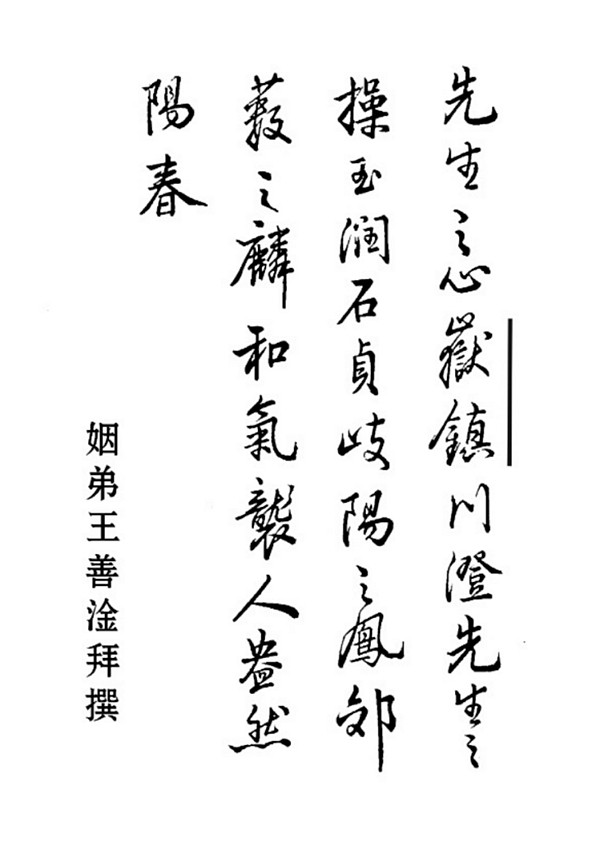 先生之心嶽鎮川澄先生之
操玉潤石貞岐陽之鳳郊
藪之麟和氣襲人盎然
陽春
姻弟王善淦拜撰